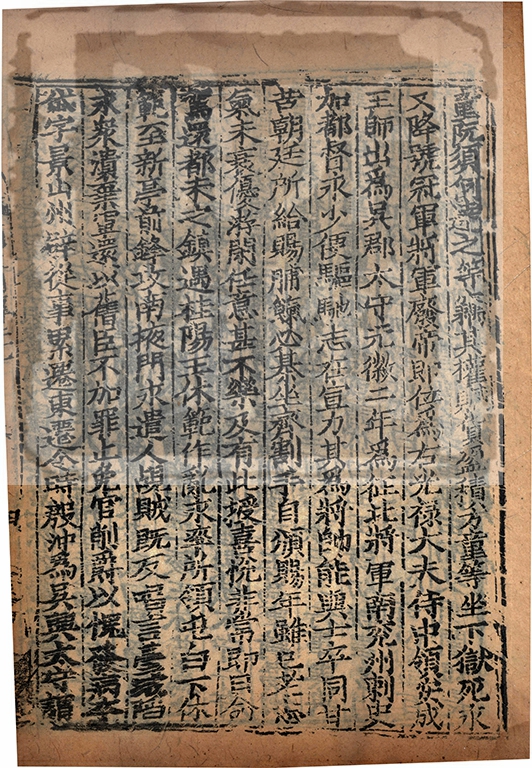 童阮須何逵之等竊其權賕貨盈積方童等坐下獄死永
又降號冠軍將軍廢帝即位為右光禄大夫侍中領安成
王師出為吳郡太守元徽二年為征北將軍南兖州刺史
加都督永少便驅馳志在宣力其為將帥能與士卒同甘
苦朝廷所給賜脯餼必棊坐齊割手自頒賜年雖已老志
氣未衰優游閑任意甚不樂及有此授喜悅非常即日命
駕還都未之鎮遇桂陽王休範作亂永率所領屯白下休
範至新亭前鋒攻南掖門永遣人覘賊既反唱言臺城陷
永衆潰棄軍還以舊臣不加罪止免官削爵以愧發病卒
岱字景山州辟從事累遷東遷令時殷沖為吳興太守謂